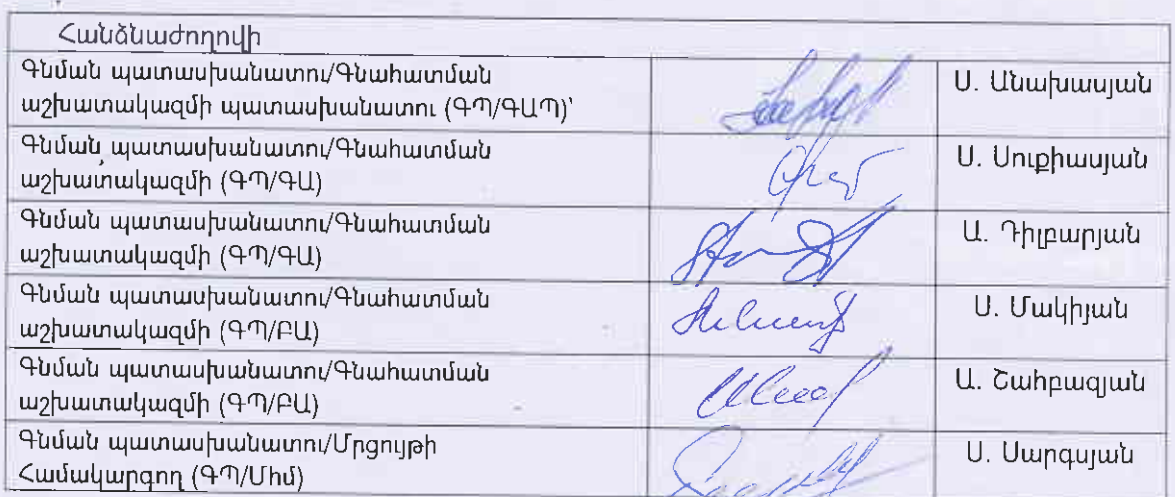 Հանձնաժողովի
Գնման պատասխանատու/Գնահատման
աշխատակազմի պատասխանատու (ԳՊ/ԳԱՊ)՝
Ս. Անախասյան
Գնման պատասխանատու/Գնահատման
աշխատակազմի (ԳՊ/ԳԱ)
Ս. Սուքիասյան
Գնման պատասխանատու/Գնահատման
աշխատակազմի (ԳՊ/ԳԱ)
Ա. Դիլբարյան
Գնման պատասխանատու/Գնահատման
աշխատակազմի (ԳՊ/ԲԱ)
Ս. Մակիյան
Գնման պատասխանատու/Գնահատման
աշխատակազմի (ԳՊ/ԲԱ)
Ա. Շահբազյան
Գնման պատասխանատու/Մրցույթի
Համակարգող (ԳՊ/Միմ)
Ս. Սարգսյան